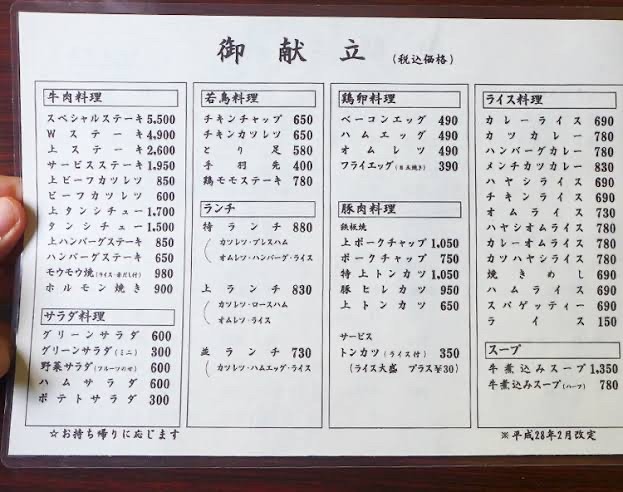 御献立 (税込価格)
牛肉料理
スペシャルステーキ 5,500
Wステーキ 4,900
上ステーキ 2,600
サービスステーキ 1,950
上ビーフカツレツ 850
ビーフカツレツ 600
上タンシチュー 1,700
タンシチュー 1,500
上ハンバーグステーキ 850
ハンバーグステーキ 650
モウモウ焼(ライス・赤だし付) 980
ホルモン焼き 900
サラダ料理
グリーンサラダ 600
グリーンサラダ(ミニ) 300
野菜サラダ(フルーツのせ) 600
ハムサラダ 600
ポテトサラダ 300
若鳥料理
チキンチャップ 650
チキンカツレツ 650
とり足 580
手羽先 400
鶏モモステーキ 780
ランチ
特ランチ 880
カツレツ・プレスハム
オムレツ・ハンバーグ・ライス
上ランチ 830
カツレツ・ロースハム
オムレツ・ライス
並ランチ 730
カツレツ・ハムエッグ・ライス
鶏卵料理
ベーコンエッグ 490
ハムエッグ 490
オムレツ 490
フライエッグ(目玉焼き) 390
豚肉料理
鉄板焼
上ポークチャップ 1,050
ポークチャップ 750
特上トンカツ 1,050
豚ヒレカツ 950
上トンカツ 650
サービス
トンカツ(ライス付) 350
(ライス大盛 プラス¥30)
ライス料理
カレーライス 690
カツカレー 780
ハンバーグカレー 780
メンチカツカレー 830
ハヤシライス 690
チキンライス 690
オムライス 730
ハヤシオムライス 780
カレーオムライス 780
カツハヤシライス 780
焼きめし 690
ハムライス 690
スパゲッティー 690
ライス 150
スープ
牛煮込みスープ 1,350
牛煮込みスープ(ハーフ) 780
☆お持ち帰りに応じます
※平成28年2月改定